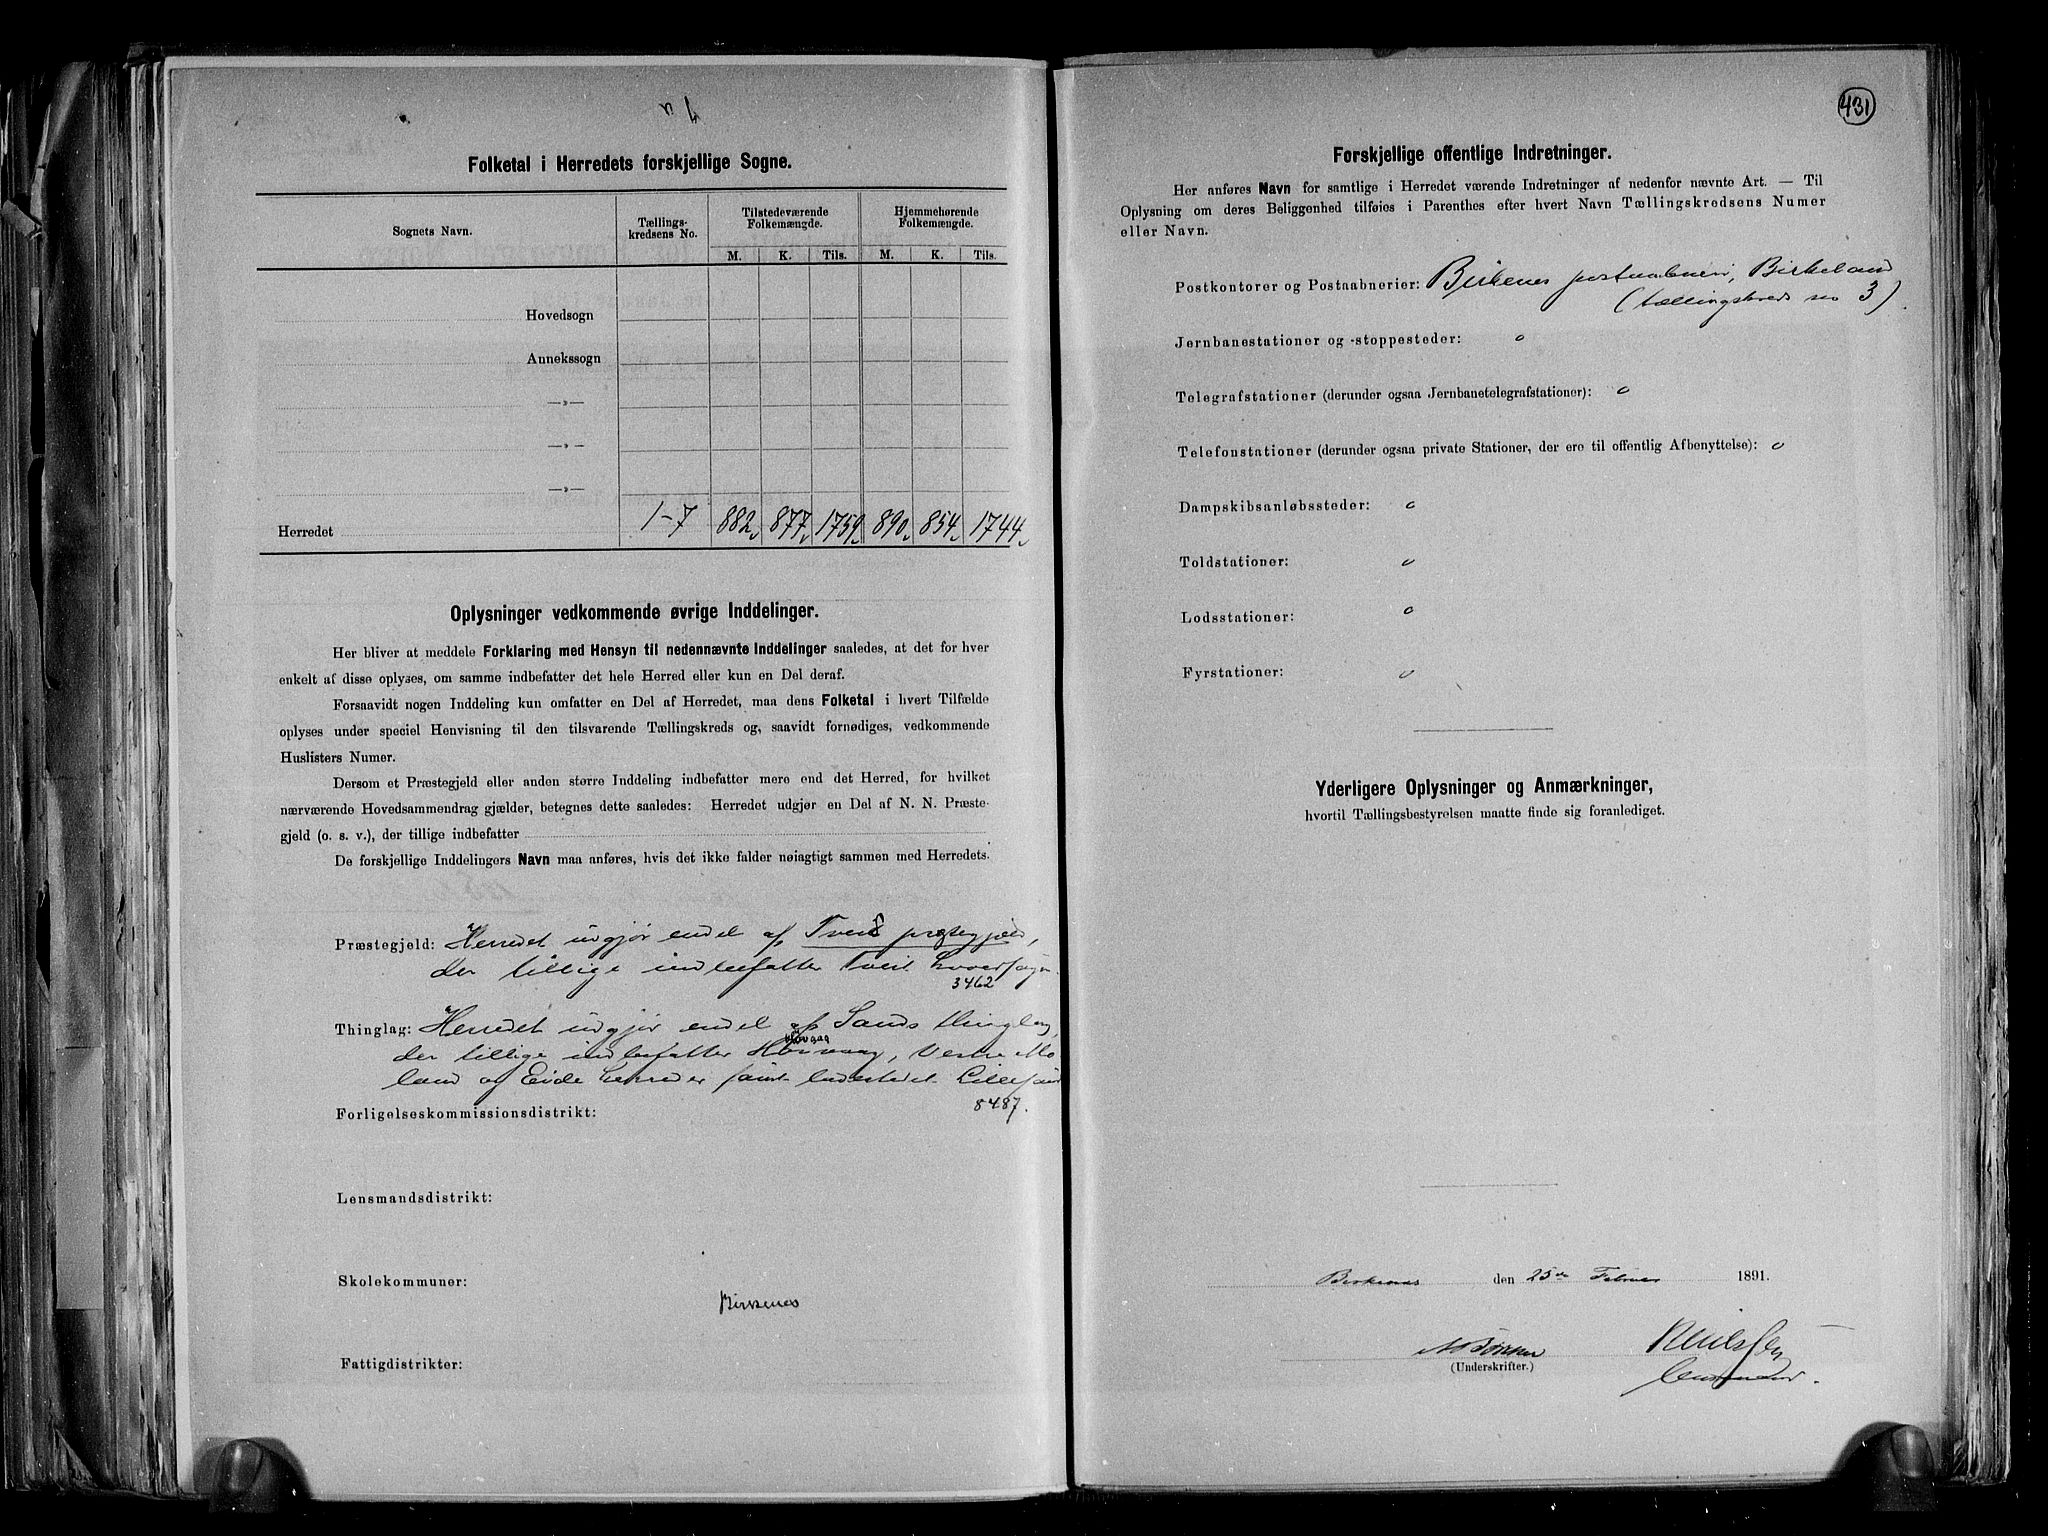 Folketal i Herredets forskjellige Sogne.
Sognets Navn.
Tællings-
kredsens No.
Tilstedeværende
Folkemængde.
Hjemmehørende
Folkemængde.
M. K. Tils. M. K. Tils.
Hovedsogn
Annekssogn
—»—
—»—
—»—
Herredet 1-7 882 877 1759 890 854 1744
Oplysninger vedkommende øvrige Inddelinger.
Her bliver at meddele Forklaring med Hensyn til nedennævnte Inddelinger saaledes, at det for hver
enkelt af disse oplyses, om samme indbefatter det hele Herred eller kun en Del deraf.
Forsaavidt nogen Inddeling kun omfatter en Del af Herredet, maa dens Folketal i hvert Tilfælde
oplyses under speciel Henvisning til den tilsvarende Tællingskreds og, saavidt fornødiges, vedkommende
Huslisters Numer.
Dersom et Præstegjeld eller anden større Inddeling indbefatter mere end det Herred, for hvilket
nærværende Hovedsammendrag gjælder, betegnes dette saaledes: Herredet udgjør en Del af N. N. Præste-
gjeld (o. s. v.), der tillige indbefatter
De forskjellige Inddelingers Navn maa anføres, hvis det ikke falder nøiagtigt sammen med Herredets.
Præstegjeld: Herredet udgjør endel af Tveit præstegjeld,
der tillige indbefatter Tveit hovedsogn
3462
Thinglag: Herredet udgjør endel af Sands thinglag,
Høvaag
der tillige indbefatter Høivaag, Vestre Mo-
land og Eide herreder samt ladestedet Lillesand
8487.
Forligelseskommissionsdistrikt:
Lensmandsdistrikt:
Skolekommuner:
Birkenes
Fattigdistrikter:
431
Forskjellige offentlige Indretninger.
Her anføres Navn for samtlige i Herredet værende Indretninger af nedenfor nævnte Art. — Til
Oplysning om deres Beliggenhed tilføies i Parenthes efter hvert Navn Tællingskredsens Numer
eller Navn.
Postkontorer og Postaabnerier: Birkenes postaabneri, Birkeland
(tællingskreds no 3)
Jernbanestationer og -stoppesteder: o
Telegrafstationer (derunder ogsaa Jernbanetelegrafstationer): o
Telefonstationer (derunder ogsaa private Stationer, der ere til offentlig Afbenyttelse): o
Dampskibsanløbssteder: o
Toldstationer: o
Lodsstationer: o
Fyrstationer: o
Yderligere Oplysninger og Anmærkninger,
hvortil Tællingsbestyrelsen maatte finde sig foranlediget.
Birkenæs den 25de Februar 1891.
(Underskrifter.)